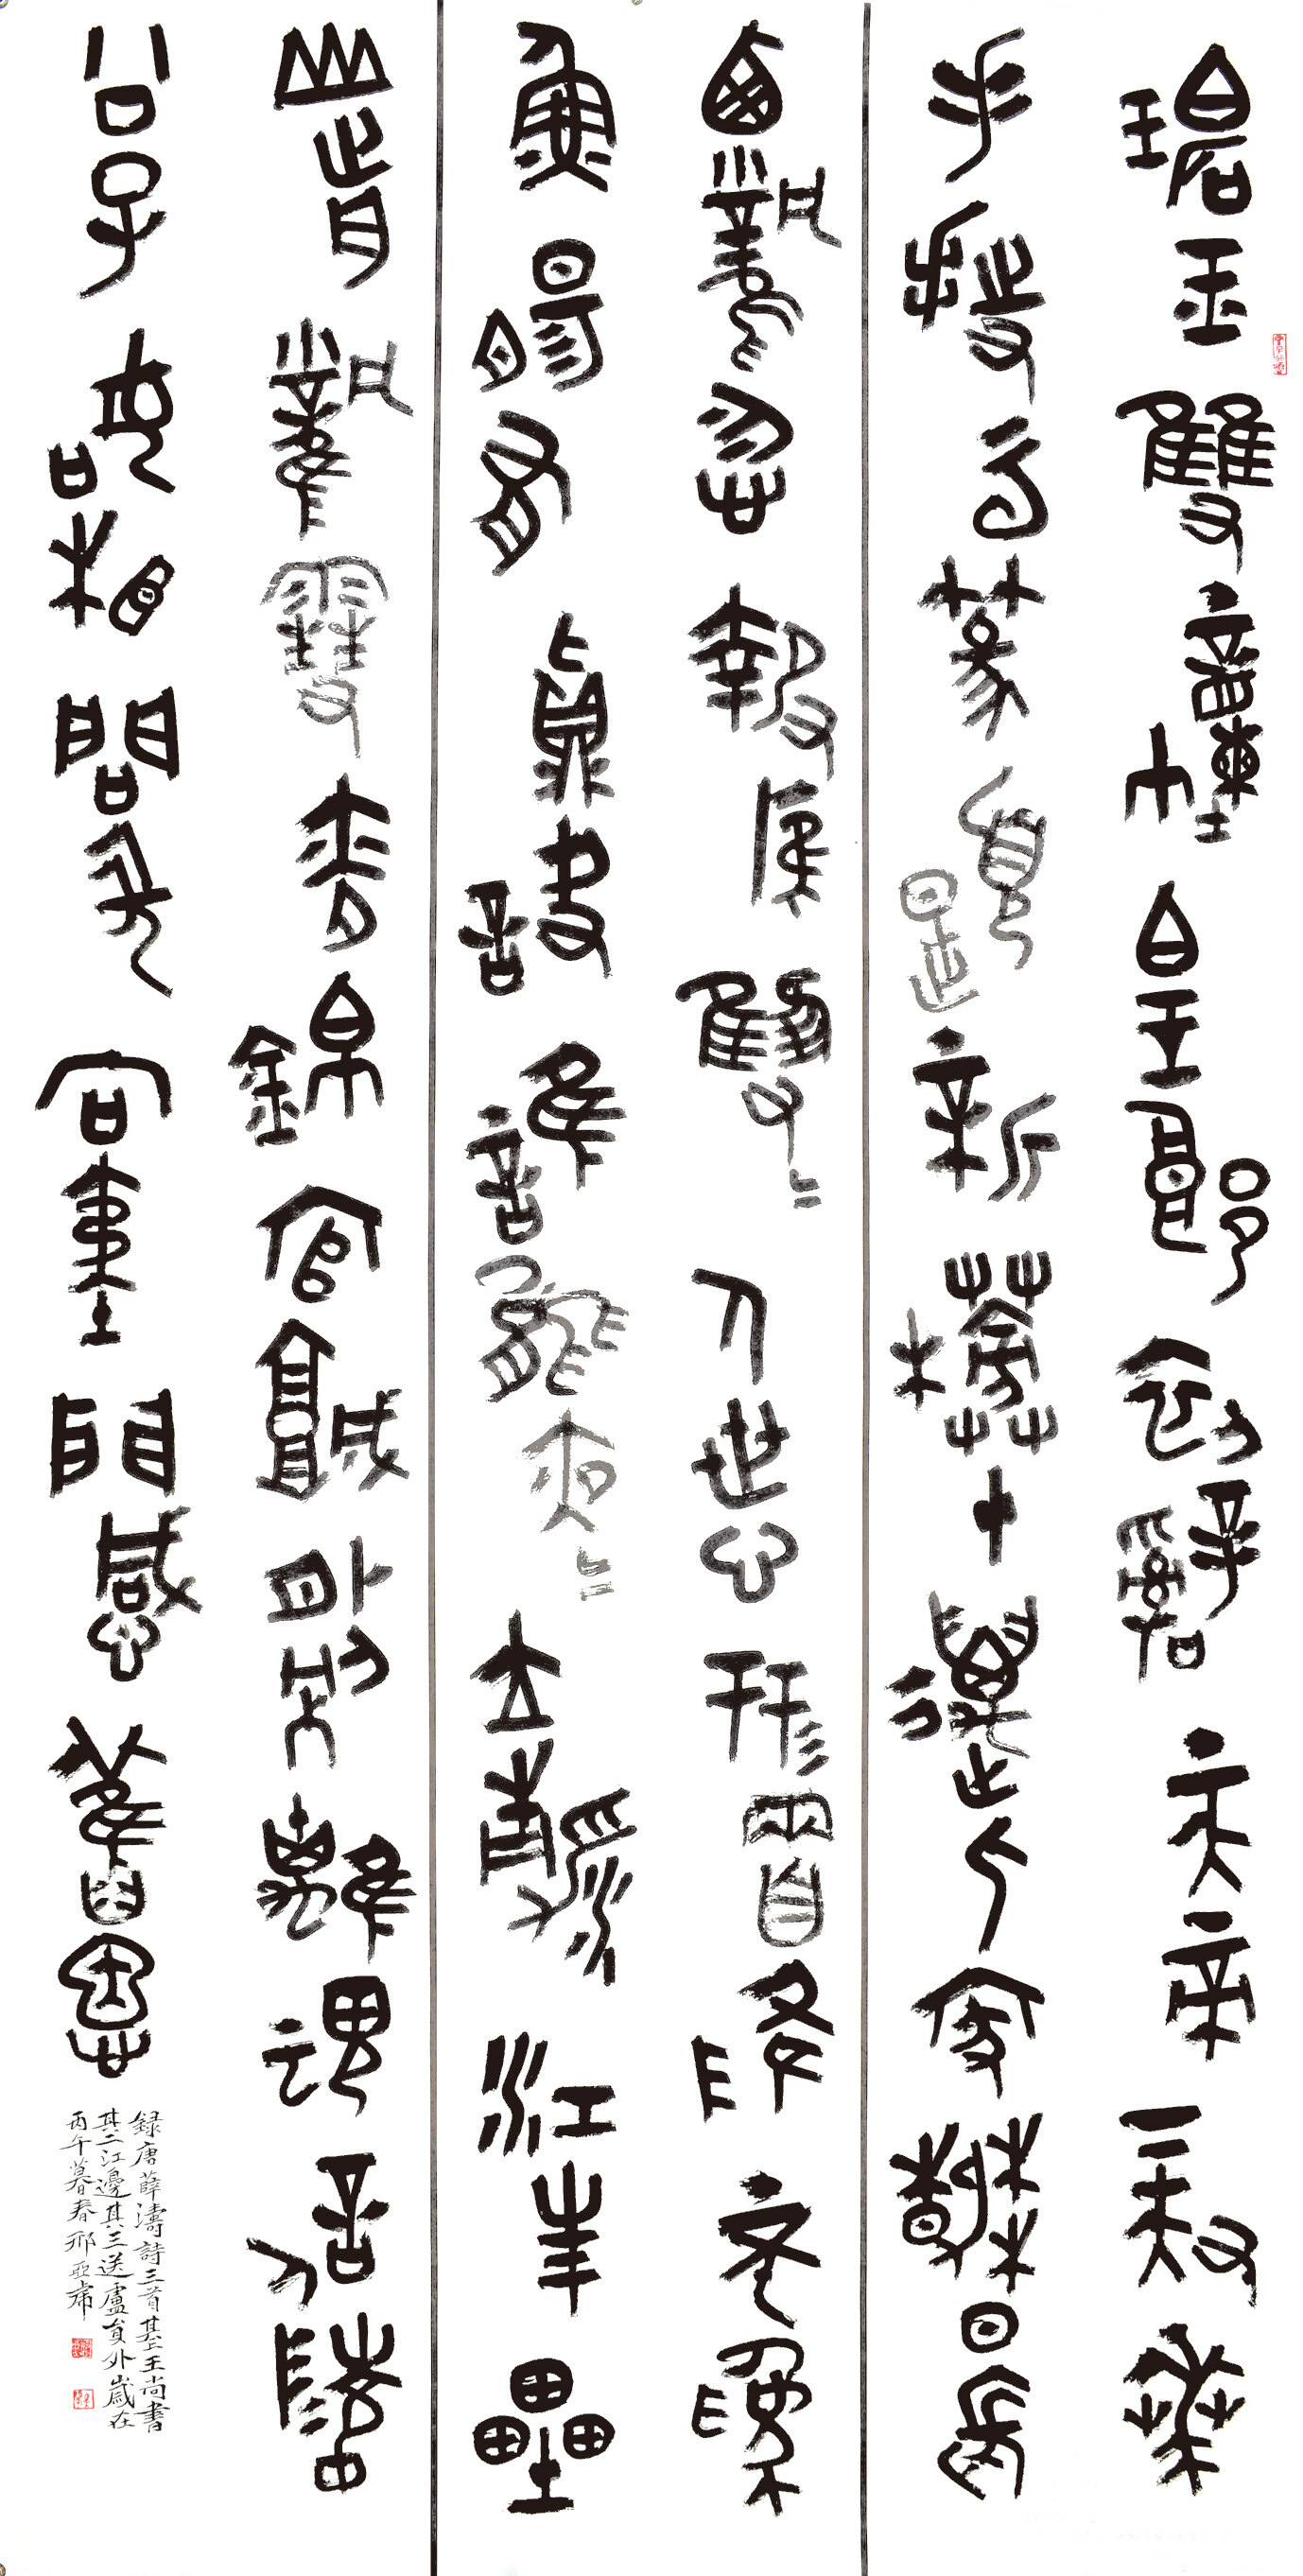 碧玉雙幢白玉郎初辭天帝下扶桑
手持雲篆題新榜十萬人家春日長
西風忽報雁雙=人世心形兩自降不為
魚腸有真訣誰能夜=立清江玉壘
山前風雪夜錦官城外別離魂信陵
公子如相問長向夷門感舊恩
錄唐薛濤詩三首其一上王尚書
其二江邊其三送盧員外歲在
丙午暮春邢亞